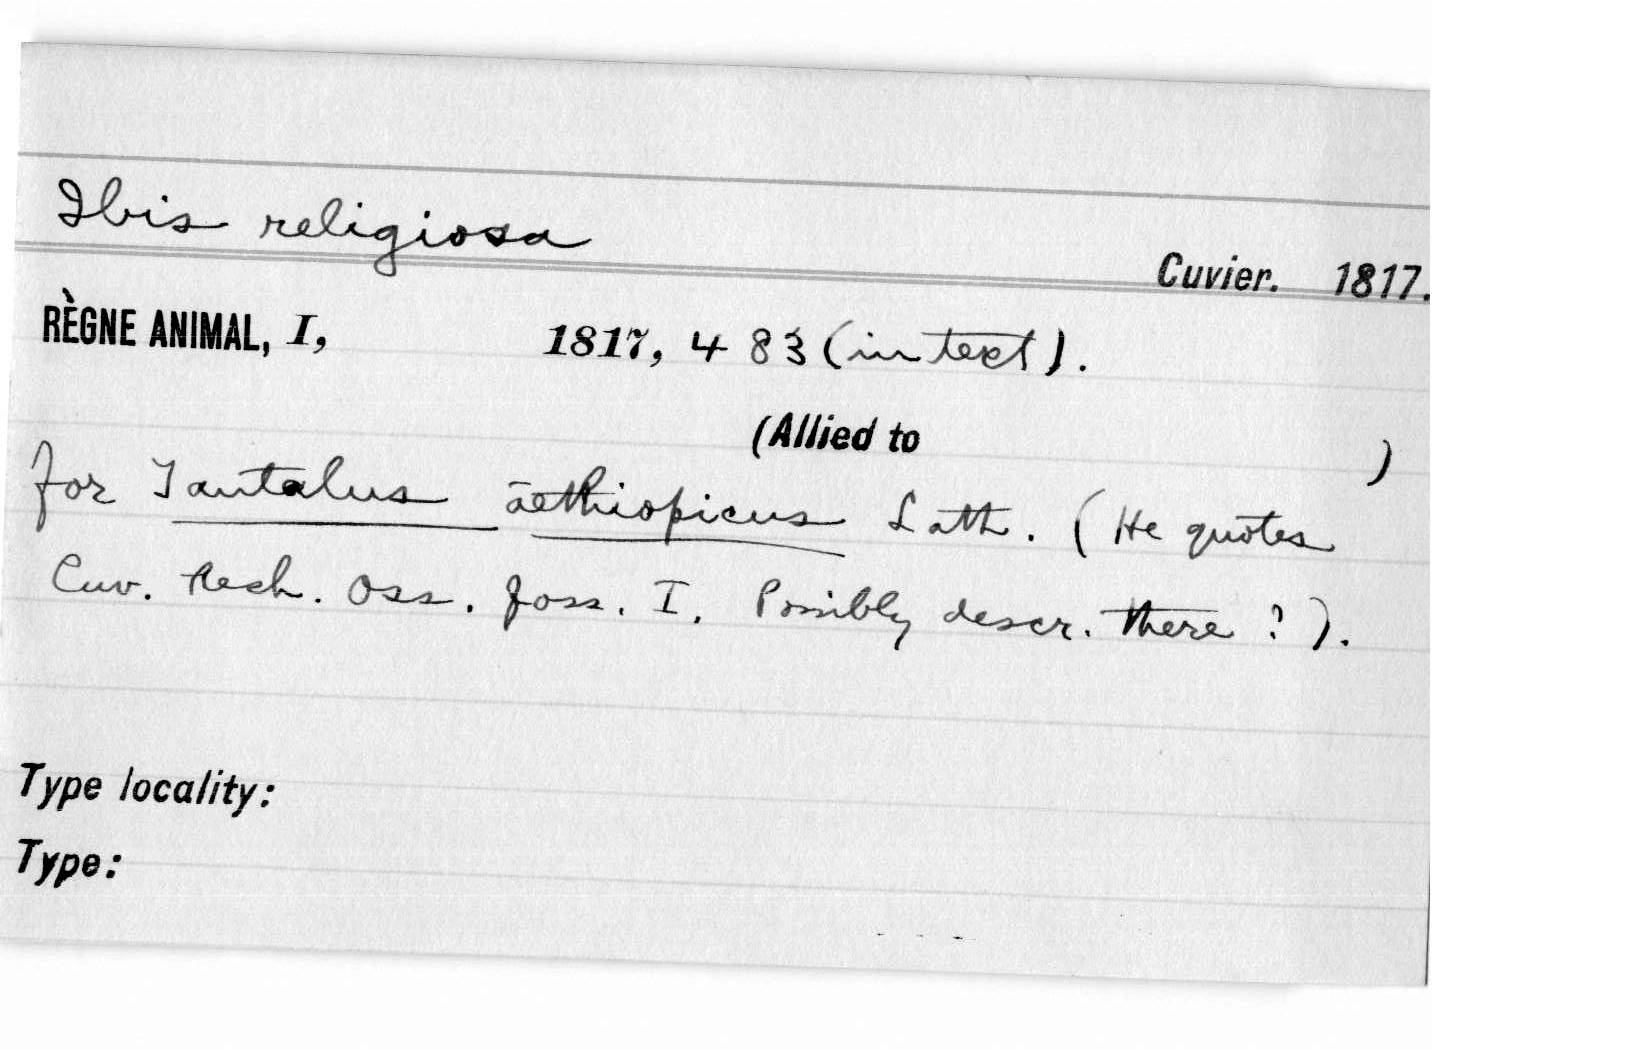 Ibis religiosa
Cuvier. 1817.
RÈGNE ANIMAL, I, 1817, 483 (in text).
(Allied to )
for Tantalus aethiopicus Lath. (He quotes
Cuv. Rech. Oss. foss. I. Possibly descr. there?).
Type locality:
Type: